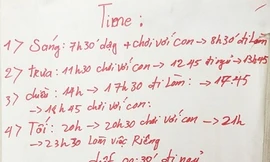 Time:
1> Sáng: 7h30 dậy + chơi với con → 8h30 đi làm
2> trưa: 11h30 chơi với con → 12.45 đi ngủ → 13h45
3> chiều: 14h → 17h30 đi làm: → 17.45
→ 19h45 chơi với con:
4> Tối: 20h → 20h30 chơi với con → 21h
→ 23h30 làm việc Riêng
đi ngủ